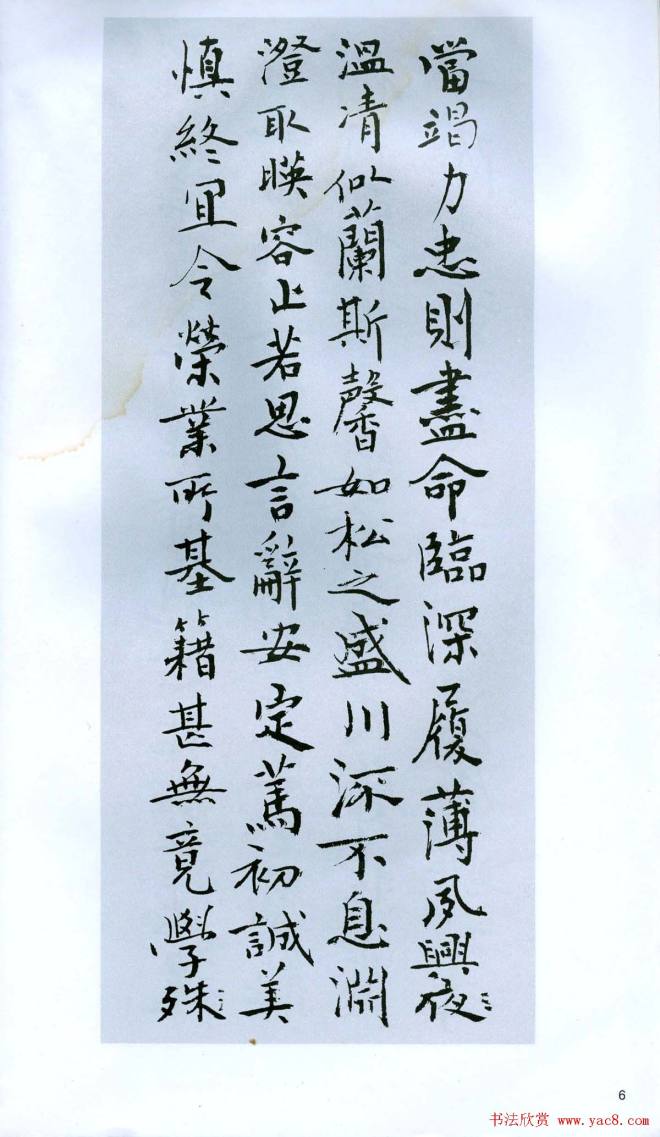 當竭力忠則盡命臨深履薄夙興夜
溫清似蘭斯馨如松之盛川流不息淵
澄取暎容止若思言辭安定篤初誠美
慎終宜令榮業所基籍甚無竟學殊
6
书法欣赏 www.yac8.com